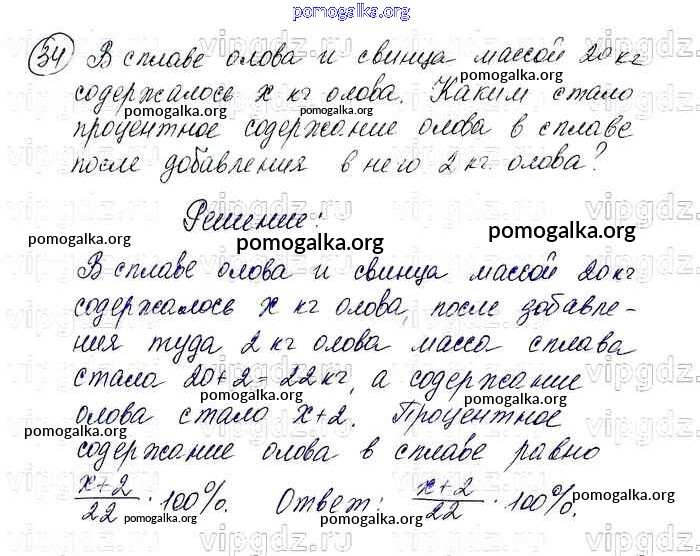 pomogalka.org
34 В сплаве олова и свинца массой 20 кг
pomogalka.org
содержалось x кг олова. Каким стало
pomogalka.org
pomogalka.org
процентное содержание олова в сплаве
pomogalka.org
после добавления в него 2 кг. олова?
vipgdz.ru vipgdz.ru vipgdz.ru
Решение:
pomogalka.org pomogalka.org pomogalka.org
В сплаве олова и свинца массой 20 кг
pomogalka.org
содержалось x кг олова, после добавле-
ния туда 2 кг олова масса сплава
pomogalka.org pomogalka.org
стала 20+2=22 кг, а содержание
pomogalka.org
олова стало x+2. Процентное
pomogalka.org pomogalka.org
содержание олова в сплаве равно
pomogalka.org
x+2/22 · 100%. Ответ: x+2/22 · 100%.
pomogalka.org pomogalka.org pomogalka.org